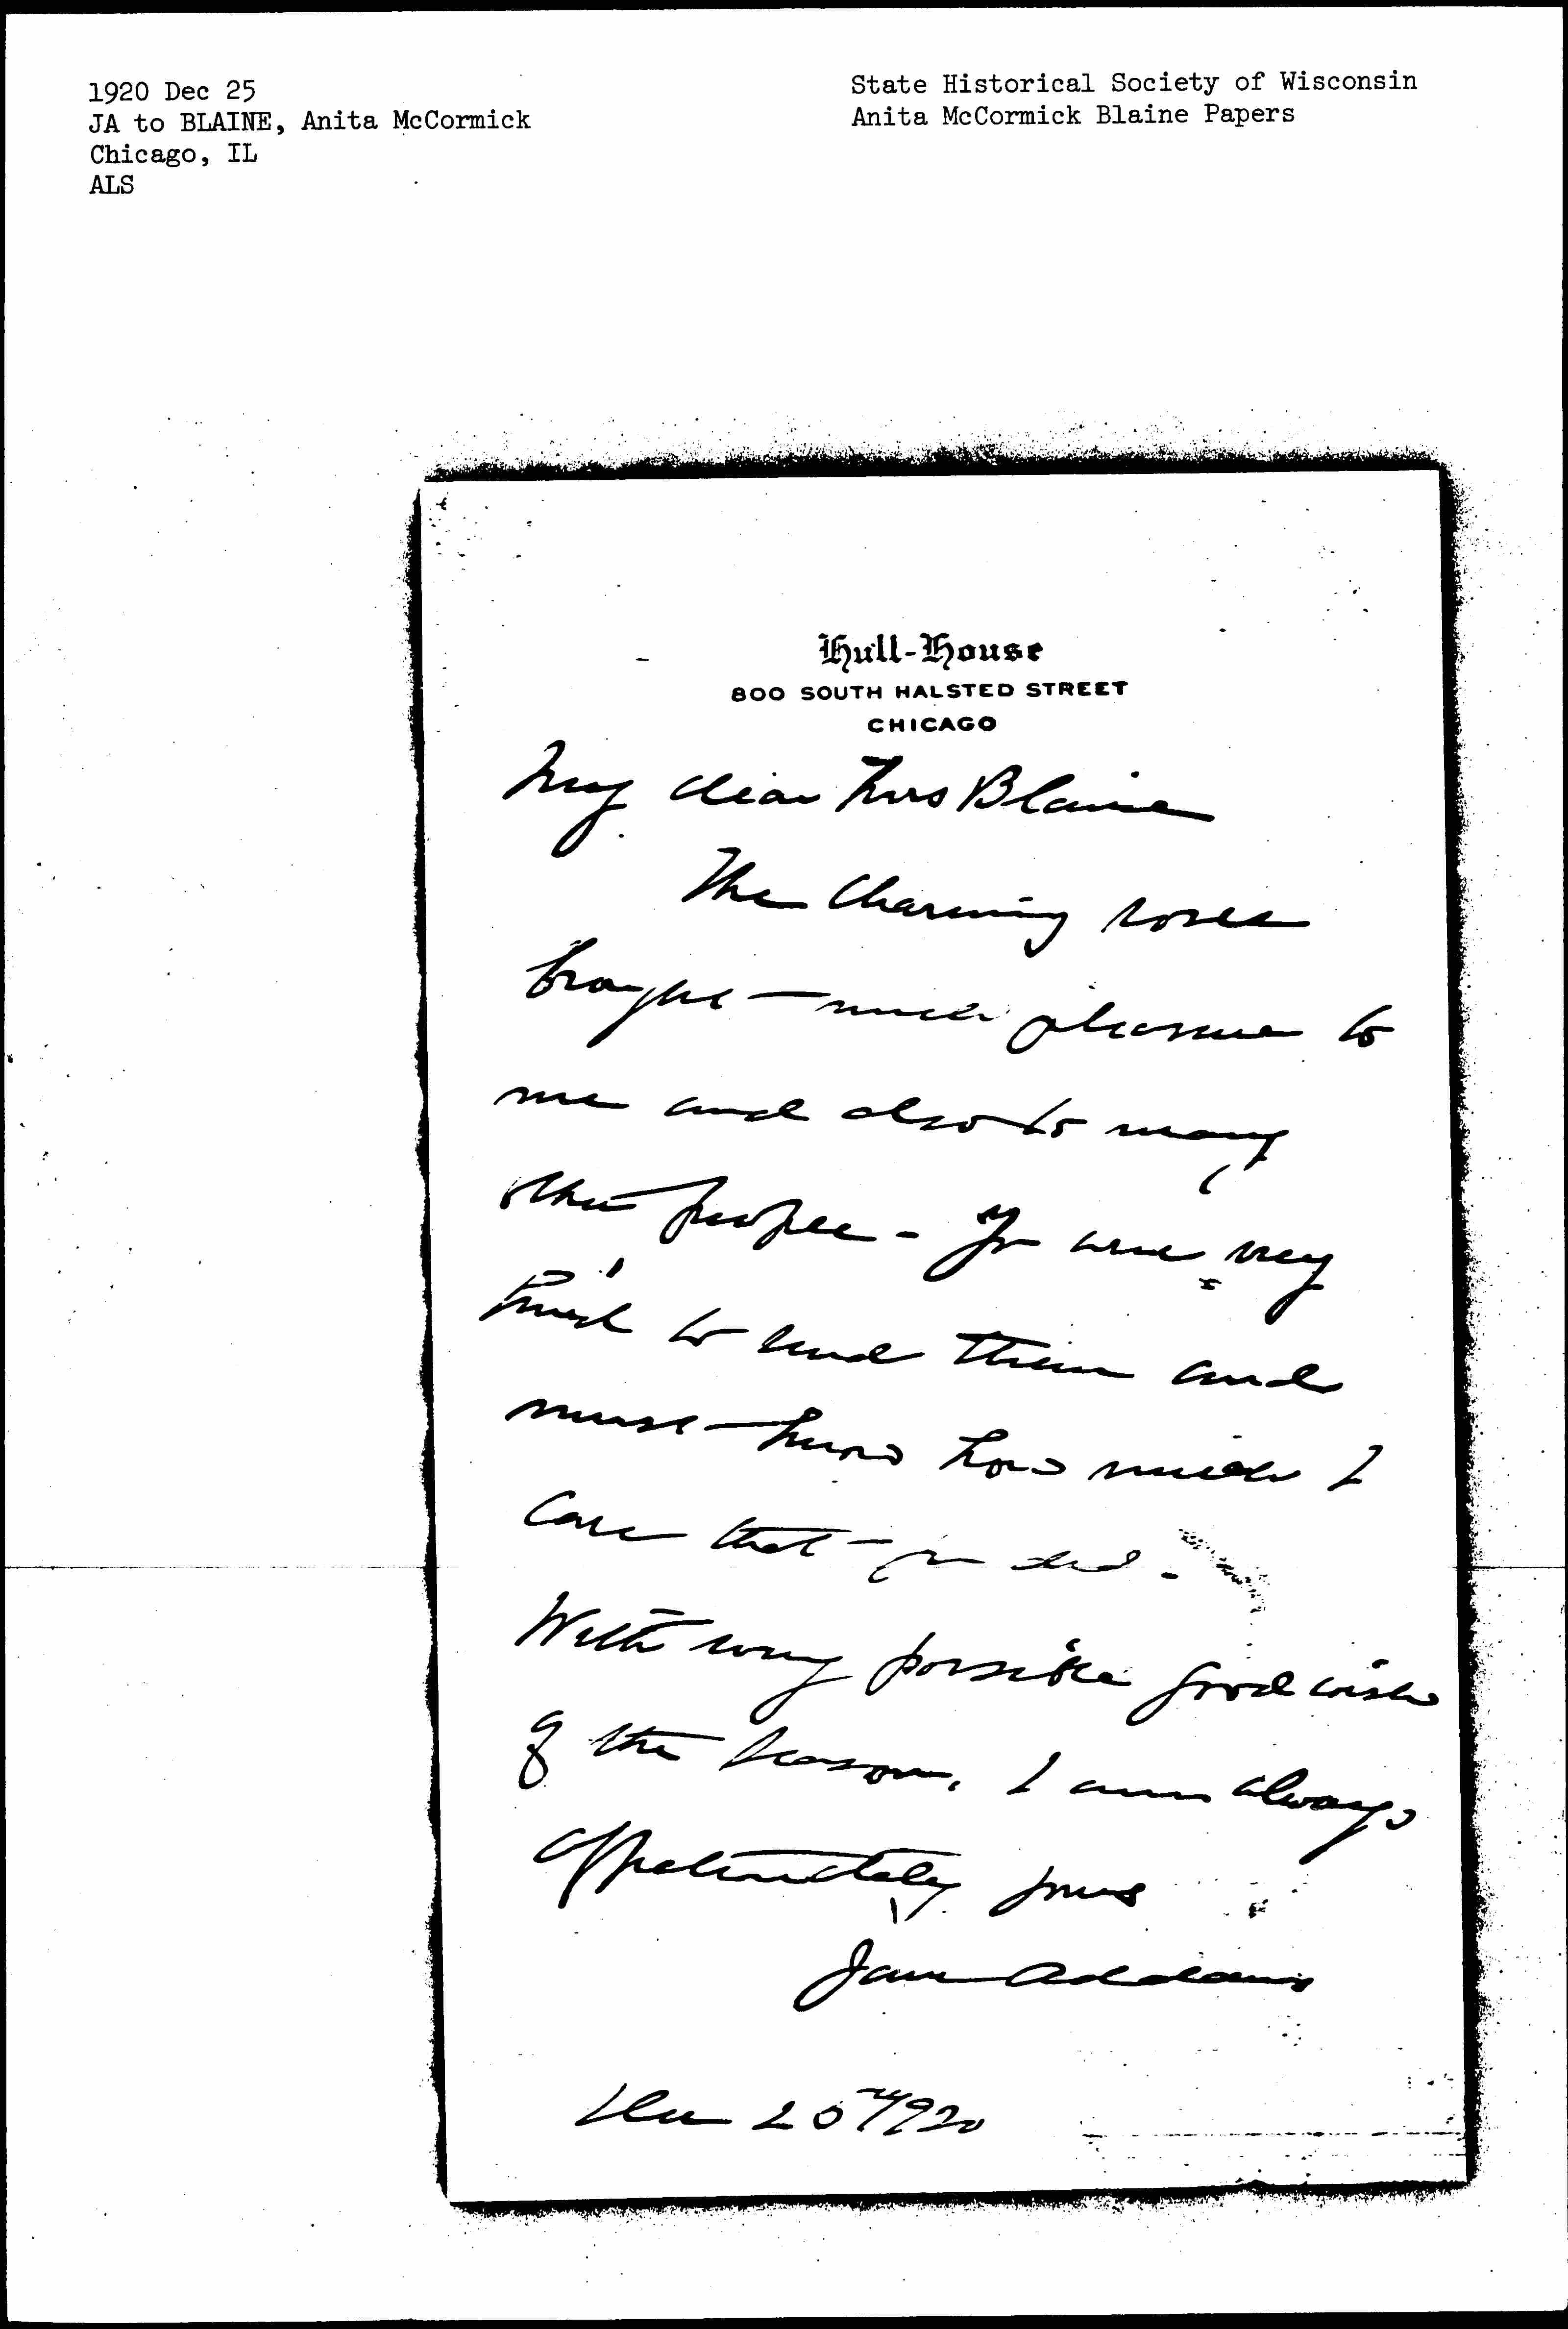 1920 Dec 25
JA to BLAINE, Anita McCormick
Chicago, IL
ALS
State Historical Society of Wisconsin
Anita McCormick Blaine Papers
Hull-House
800 SOUTH HALSTED STREET
CHICAGO
My dear Mrs Blaine
The charming roses
brought much pleasure to
me and also to many
other people - You were very
kind to send them and
must know how much I
care that you did -
With every possible good wish
of the season, I am always
affectionately yours
Jane Addams
Dec 25" 1920